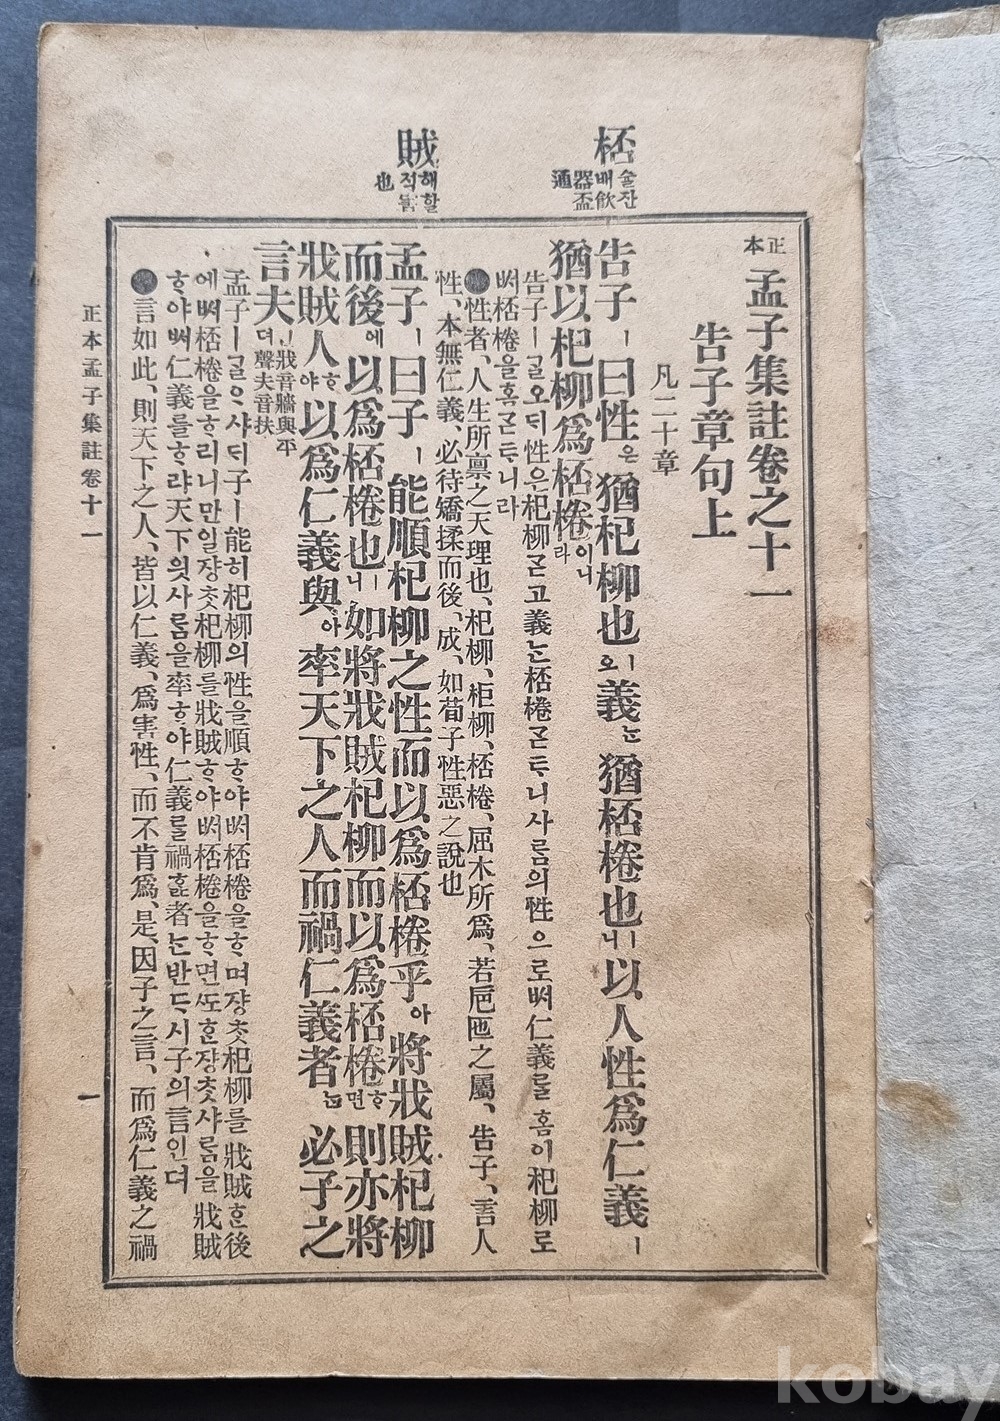 桮 술잔 배 飮器 盃通
賊 해할 적 害也
正本 孟子集註卷之十一
告子章句上
凡二十章
告子ㅣ曰性은猶杞柳也ㅣ오義는猶桮棬也ㅣ니以人性爲仁義ㅣ
猶以杞柳爲桮棬이니라
告子ㅣᄀᆞᆯ오ᄃᆡ性은杞柳ᄀᆞᆮ고義ᄂᆞᆫ桮棬ᄀᆞᆮᄐᆞ니사ᄅᆞᆷ의性으로ᄡᅥ仁義ᄅᆞᆯ홈이杞柳로
ᄡᅥ桮棬을홈ᄀᆞᆮᄐᆞ니라
性者、人生所禀之天理也、杞柳、柜柳、桮棬、屈木所爲、若巵匜之屬、告子、言人
性、本無仁義、必待矯揉而後、成、如荀子性惡之說也
孟子ㅣ曰子ㅣ能順杞柳之性而以爲桮棬乎아將戕賊杞柳
而後에以爲桮棬也ㅣ니如將戕賊杞柳而以爲桮棬ᄒᆞ면則亦將
戕賊人ᄒᆞ야以爲仁義與아率天下之人而禍仁義者ᄂᆞᆫ必子之
言夫ᆫ뎌 戕音牆與平聲夫音扶
孟子ㅣᄀᆞᆯᄋᆞ샤ᄃᆡ子ㅣ能히杞柳의性을順ᄒᆞ야ᄡᅥ桮棬을ᄒᆞ며쟝ᄎᆞᆺ杞柳를戕賊ᄒᆞᆫ後
에ᄡᅥ桮棬을ᄒᆞ리니만일쟝ᄎᆞᆺ杞柳를戕賊ᄒᆞ야ᄡᅥ桮棬을ᄒᆞ면ᄯᅩᄒᆞᆫ쟝ᄎᆞᆺ사ᄅᆞᆷ을戕賊
ᄒᆞ야ᄡᅥ仁義를ᄒᆞ랴天下읫사ᄅᆞᆷ을率ᄒᆞ야仁義ᄅᆞᆯ禍ᄒᆞᆯ者ᄂᆞᆫ반ᄃᆞ시子의言인뎌
言如此、則天下之人、皆以仁義、爲害性、而不肯爲、是、因子之言、而爲仁義之禍
正本孟子集註卷十一
一
kobay